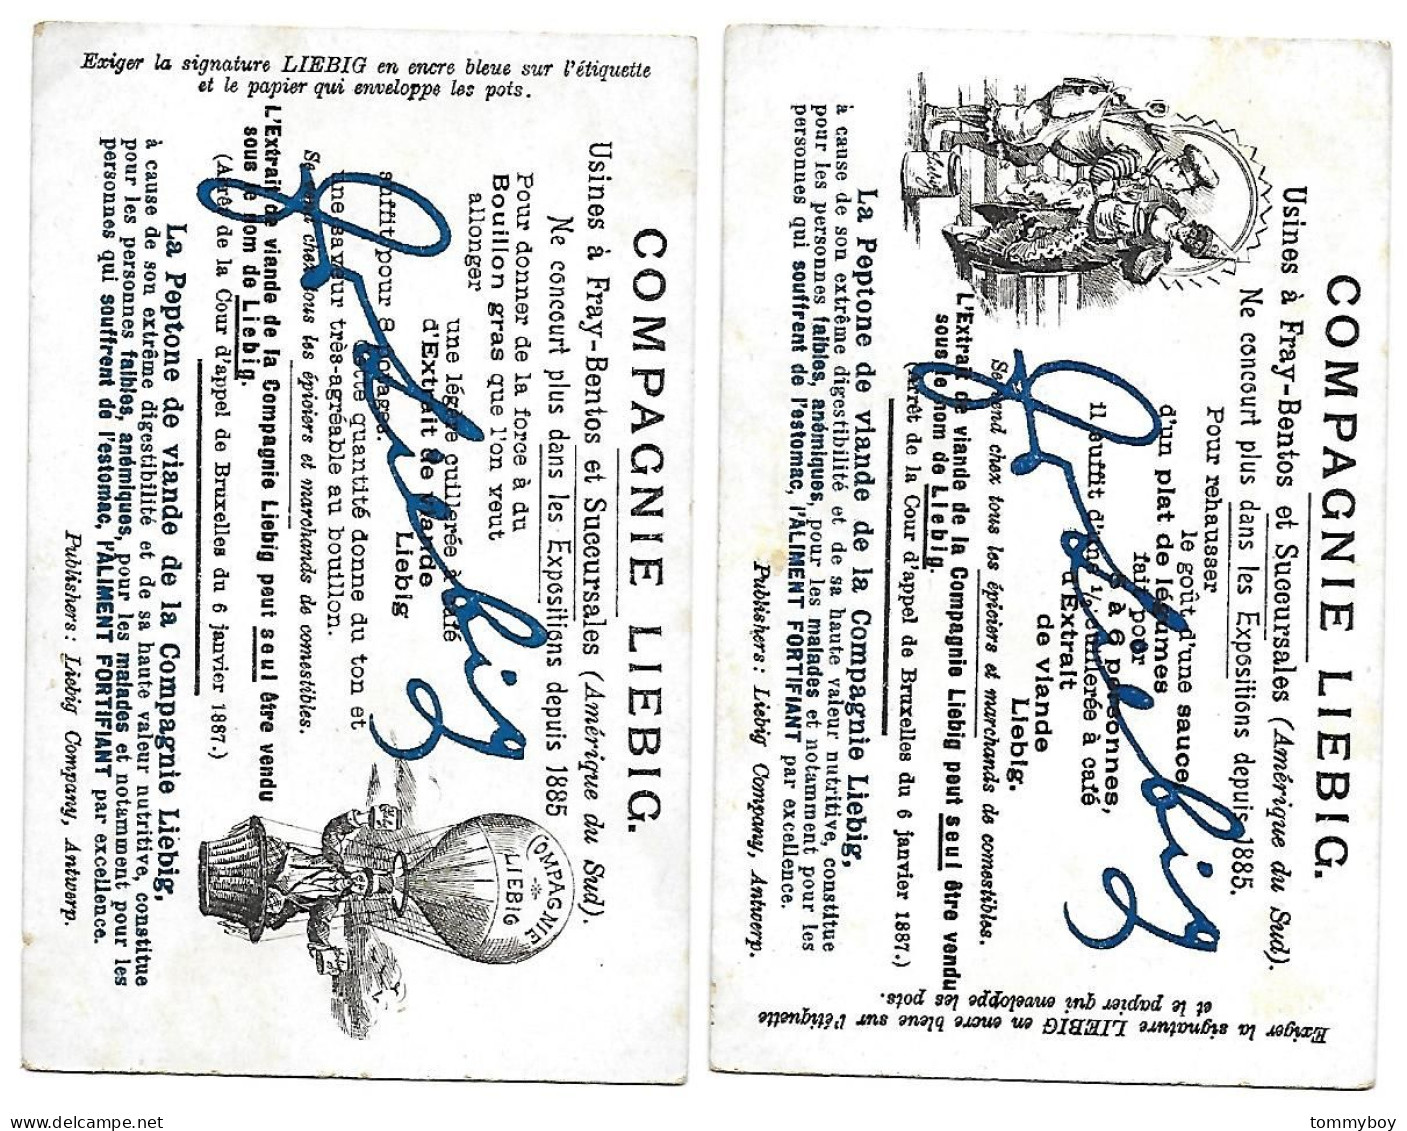 Exiger la signature LIEBIG en encre bleue sur l'étiquette
et le papier qui enveloppe les pots.
COMPAGNIE LIEBIG.
Usines à Fray-Bentos et Succursales (Amérique du Sud).
Ne concourt plus dans les Expositions depuis 1885
Pour donner de la force à du
Bouillon gras que l'on veut
allonger
une légère cuillerée à café
d'Extrait de viande
Liebig
suffit pour 8 potages.
Cette quantité donne du ton et
une saveur très-agréable au bouillon.
Se vend chez tous les épiciers et marchands de comestibles.
L'Extrait de viande de la Compagnie Liebig peut seul être vendu
sous le nom de Liebig.
(Arrêt de la Cour d'appel de Bruxelles du 6 janvier 1887.)
La Peptone de viande de la Compagnie Liebig,
à cause de son extrême digestibilité et de sa haute valeur nutritive, constitue
pour les personnes faibles, anémiques, pour les malades et notamment pour les
personnes qui souffrent de l'estomac, l'ALIMENT FORTIFIANT par excellence.
Publishers: Liebig Company, Antwerp.
COMPAGNIE
LIEBIG
Liebig
COMPAGNIE LIEBIG.
Usines à Fray-Bentos et Succursales (Amérique du Sud).
Ne concourt plus dans les Expositions depuis 1885.
Pour rehausser
le goût d'une sauce,
d'un plat de légumes
fait pour
5 à 6 personnes,
il suffit d'une 1/2 cuillerée à café
d'Extrait
de viande
Liebig.
Se vend chez tous les épiciers et marchands de comestibles.
L'Extrait de viande de la Compagnie Liebig peut seul être vendu
sous le nom de Liebig.
(Arrêt de la Cour d'appel de Bruxelles du 6 janvier 1887.)
La Peptone de viande de la Compagnie Liebig,
à cause de son extrême digestibilité et de sa haute valeur nutritive, constitue
pour les personnes faibles, anémiques, pour les malades et notamment pour les
personnes qui souffrent de l'estomac, l'ALIMENT FORTIFIANT par excellence.
Publishers: Liebig Company, Antwerp.
Liebig
Exiger la signature LIEBIG en encre bleue sur l'étiquette
et le papier qui enveloppe les pots.
tommyboy